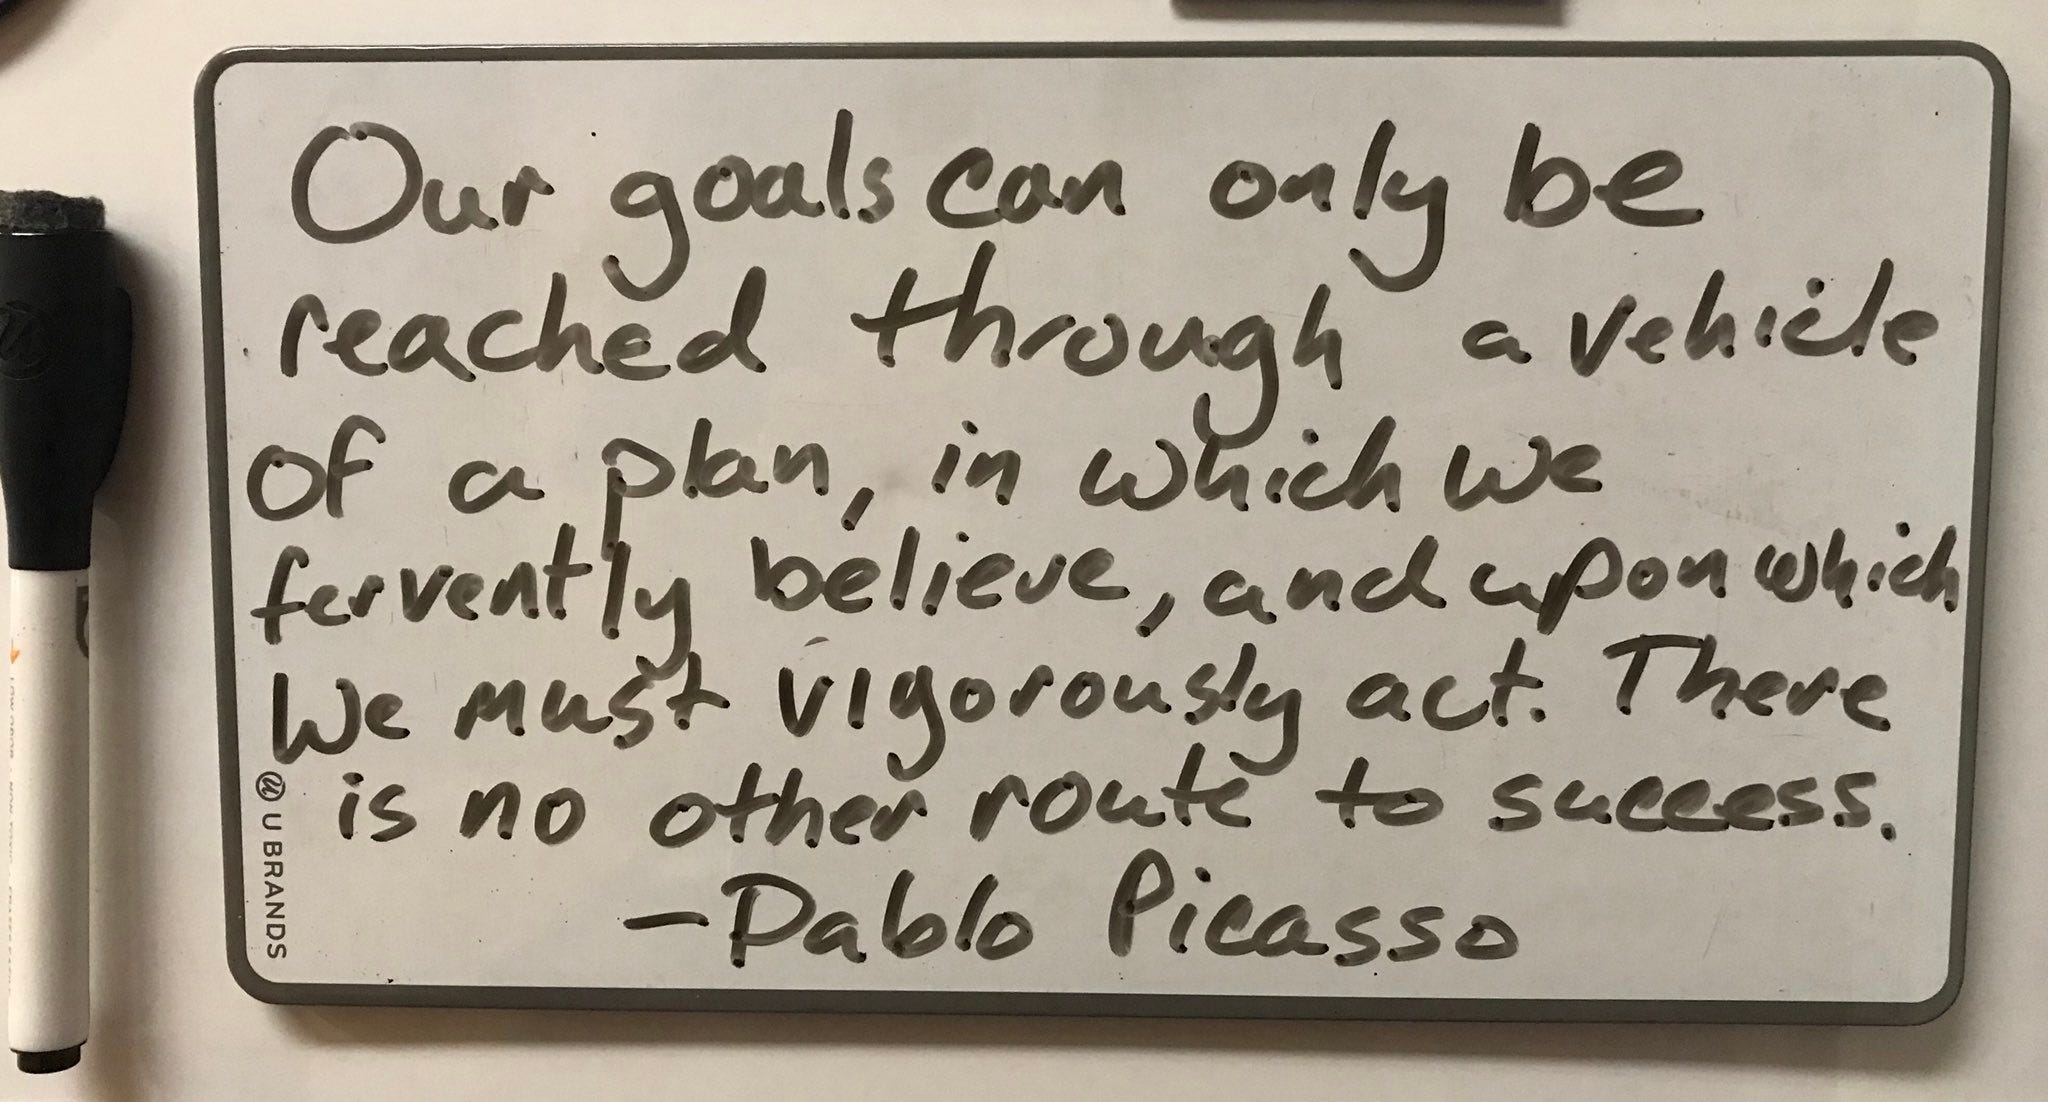 Our goals can only be
reached through a vehicle
of a plan, in which we
fervently believe, and upon which
We must vigorously act. There
is no other route to success.
-Pablo Picasso
U BRANDS